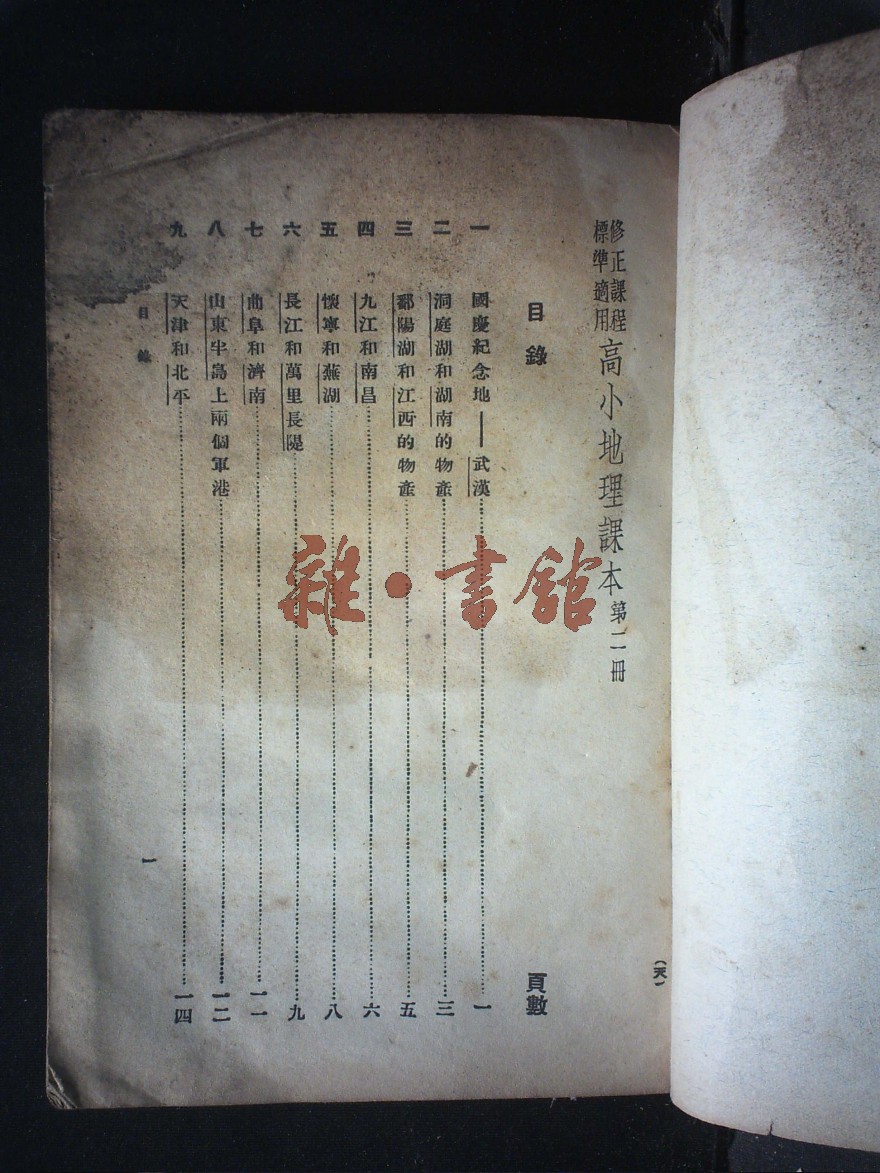 (天)
修正課程
標準適用
高小地理課本 第二冊
目錄 頁數
一 國慶紀念地——武漢 一
二 洞庭湖和湖南的物產 三
三 鄱陽湖和江西的物產 五
四 九江和南昌 六
五 懷寧和蕪湖 八
六 長江和萬里長隄 九
七 曲阜和濟南 一一
八 山東半島上兩個軍港 一二
九 天津和北平 一四
目錄 一
雜·書館